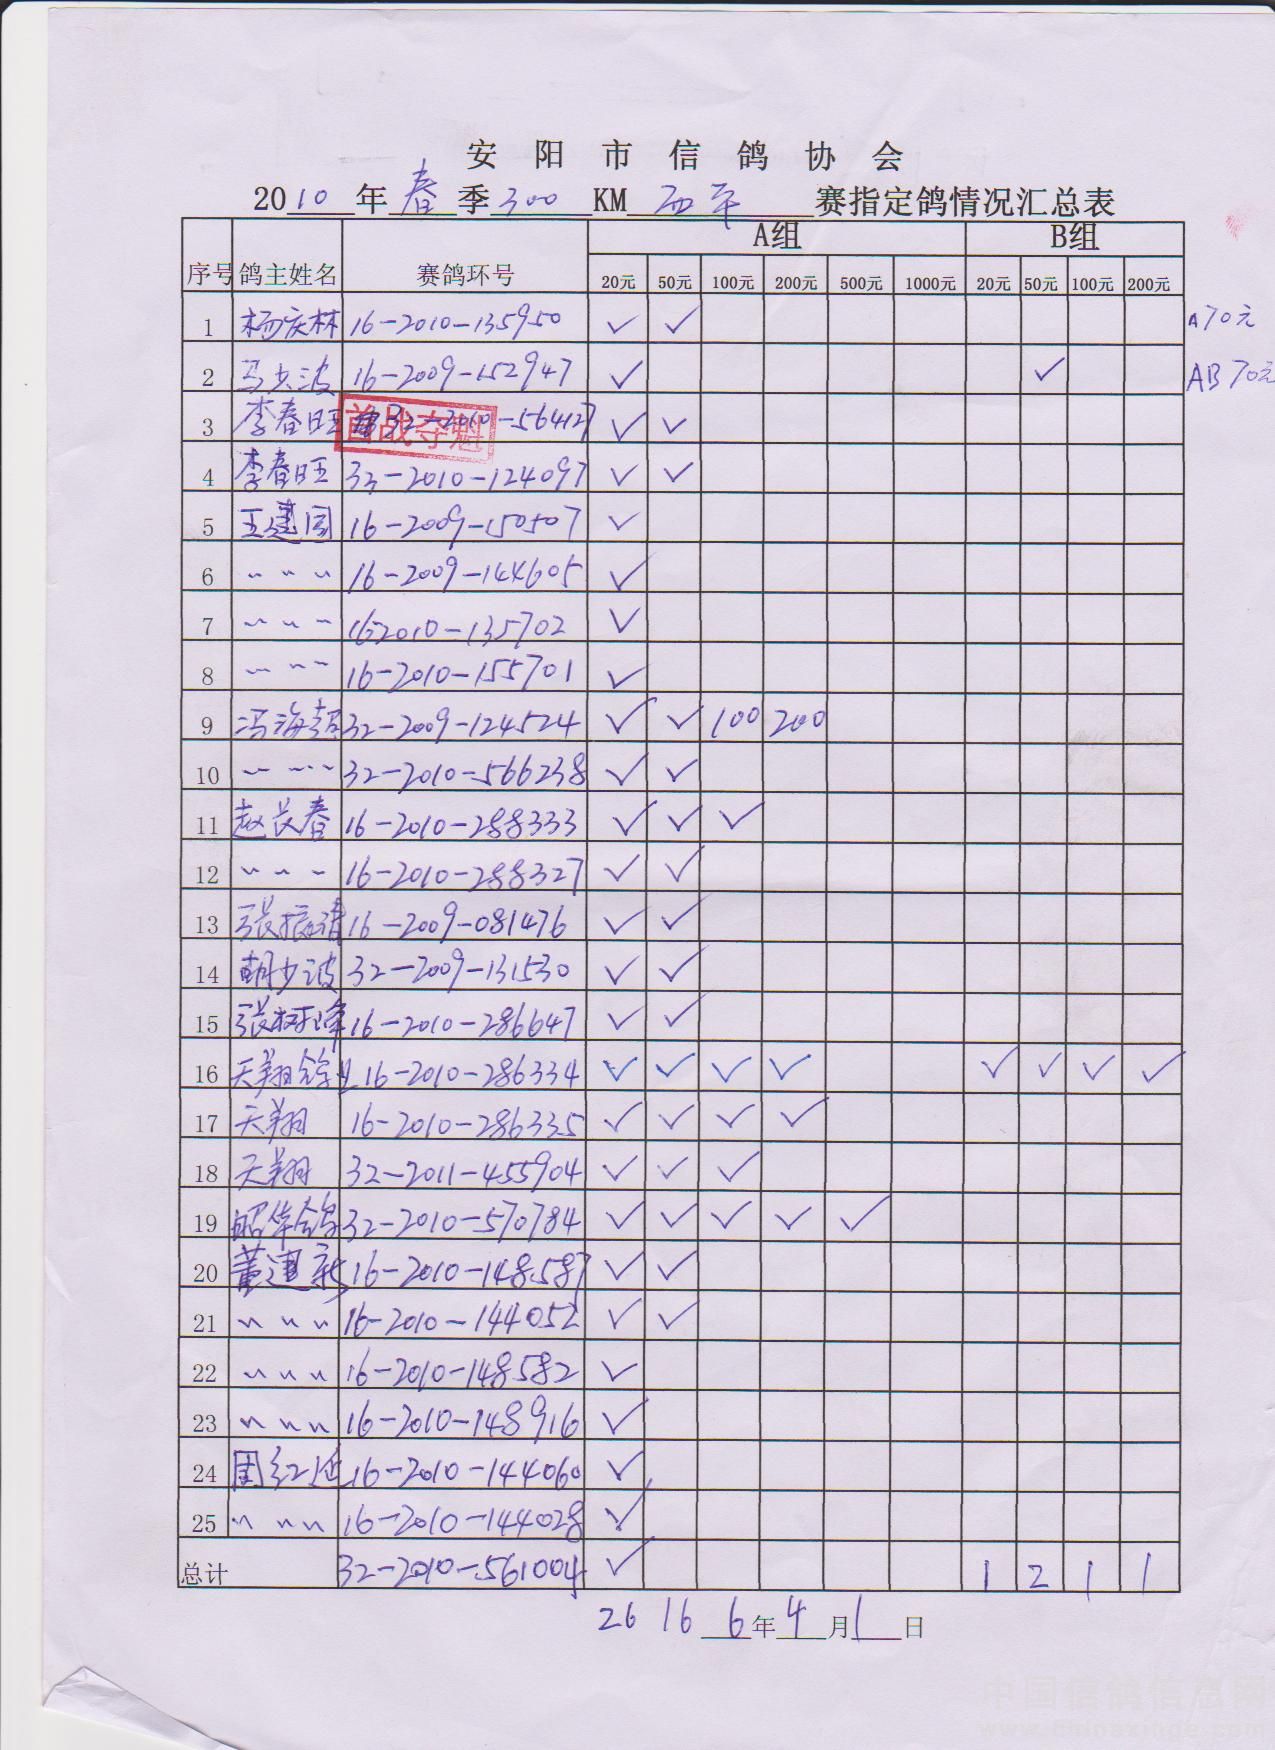 安阳市信鸽协会
2010年春季300KM西平赛指定鸽情况汇总表
序号 鸽主姓名 赛鸽环号 A组 B组
20元 50元 100元 200元 500元 1000元 20元 50元 100元 200元
1 杨庆林 16-2010-135950 ✓ ✓ A70元
2 马少波 16-2009-152947 ✓ ✓ AB70元
3 李春旺 32-2010-564127 ✓ ✓
首战夺魁
4 李春旺 32-2010-124097 ✓ ✓
5 王建国 16-2009-150507 ✓
6 〃 〃 〃 16-2009-144605 ✓
7 〃 〃 〃 16-2010-135702 ✓
8 〃 〃 〃 16-2010-155701 ✓
9 冯海 32-2009-124524 ✓ ✓ 100 200
10 〃 〃 〃 32-2010-566238 ✓ ✓
11 赵长春 16-2010-288333 ✓ ✓ ✓
12 〃 〃 〃 16-2010-288327 ✓ ✓
13 张振清 16-2009-081476 ✓ ✓
14 胡少波 32-2009-131530 ✓ ✓
15 张 峰 16-2010-286647 ✓ ✓
16 天翔鸽业 16-2010-286334 ✓ ✓ ✓ ✓ ✓ ✓ ✓ ✓
17 天翔 16-2010-286335 ✓ ✓ ✓ ✓
18 天翔 32-2011-455904 ✓ ✓ ✓
19 昭华鸽 32-2010-570784 ✓ ✓ ✓ ✓ ✓
20 董建新 16-2010-148587 ✓ ✓
21 〃 〃 〃 16-2010-144052 ✓ ✓
22 〃 〃 〃 16-2010-148582 ✓
23 〃 〃 〃 16-2010-148916 ✓
24 周红延 16-2010-144060 ✓
25 〃 〃 〃 16-2010-144028 ✓
总计 32-2010-561004 ✓ 1 2 1 1
26 16 6年4月1日
中国信鸽信息网
www.chinaxinge.com